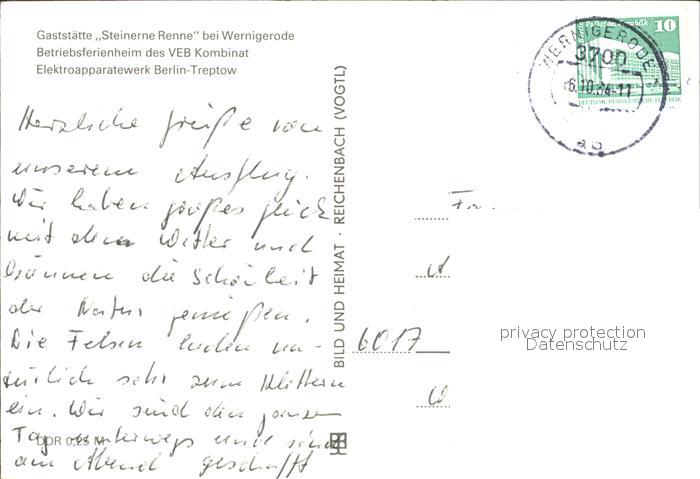 Gaststätte „Steinerne Renne" bei Wernigerode
Betriebsferienheim des VEB Kombinat
Elektroapparatewerk Berlin-Treptow
Herzliche Grüße von
unserem Ausflug.
Wir haben großes Glück
mit dem Wetter und
können die Schönheit
der Natur genießen.
Die Felsen luden na-
türlich sehr zum Klettern
ein. Wir sind den ganzen
Tag unterwegs und sind
am Abend geschafft
DDR 0,25 M
BILD UND HEIMAT · REICHENBACH (VOGTL)
WERNIGERODE
3700
6.10.84-11
ab
10
DEUTSCHE DEMOKRATISCHE REPUBLIK
6017
privacy protection
Datenschutz